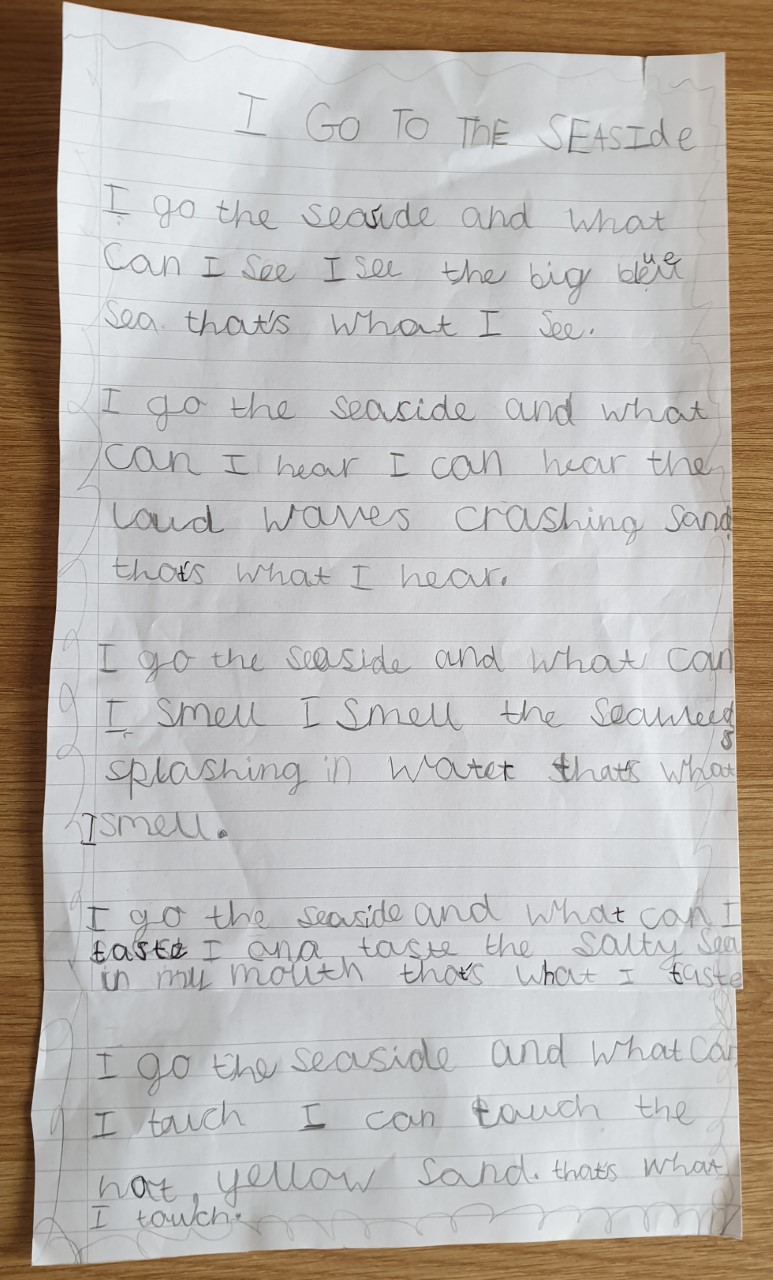 I GO TO THE SEASIde
I go the seaside and what
can I see I see the big blue
sea. that's what I see.
I go the seaside and what
can I hear I can hear the
loud waves crashing sand
that's what I hear.
I go the seaside and what can
I smell I smell the seaweed
splashing in water that's what
I smell.
I go the seaside and what can I
taste I ana taste the salty sea
in my mouth that's what I taste
I go the seaside and what can
I touch I can touch the
hot, yellow sand. that's what
I touch.